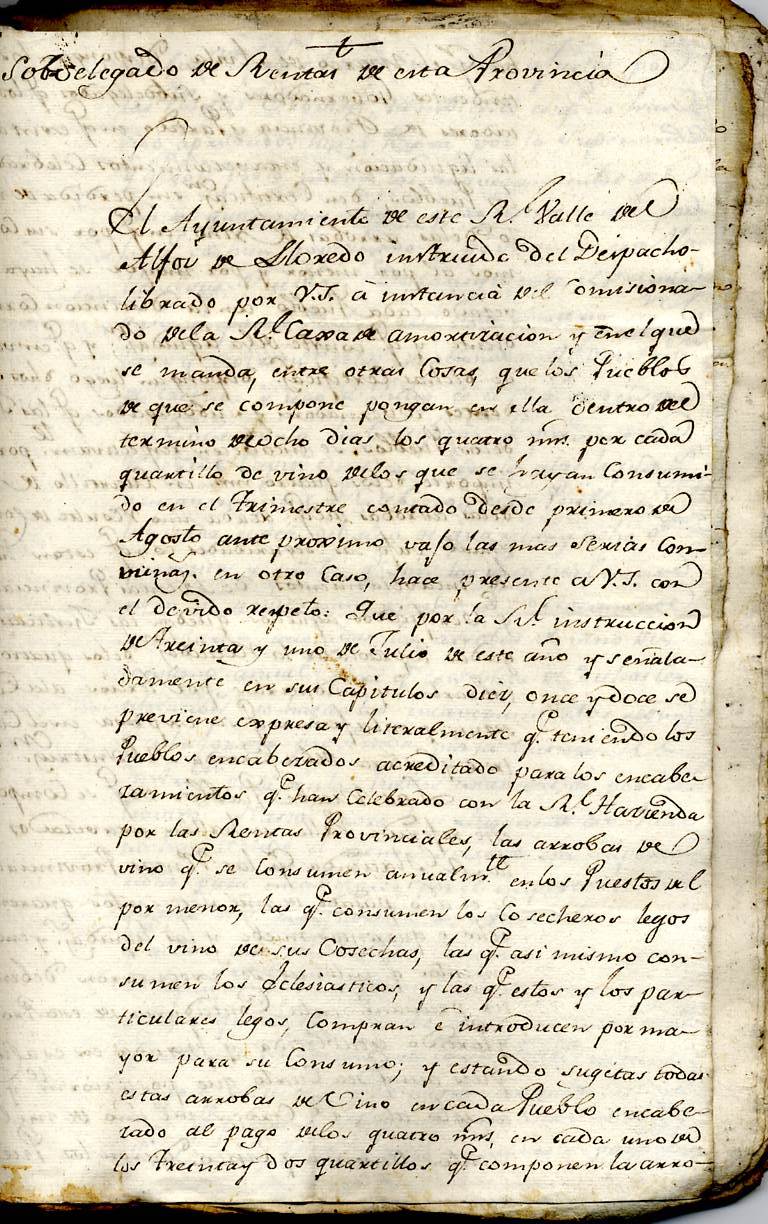 t
Sobdelegado de Rentas de esta Provincia
El Ayuntamiento de este Rl. Valle del
Alfoz de Lloredo instruido del Despacho
librado por V.S. à instancia del Comisiona-
do dela Rl. Caxa de amortizacion y en el que
se manda, entre otras Cosas, que los Pueblos
de que se compone pongan en ella dentro del
termino de ocho dias los quatro mrs. por cada
quartillo de vino delos que se hayan Consumi-
do en el Trimestre contado desde primero de
Agosto ante proximo vajo las mas serias Con-
minaz. en otro Caso, hace presente a V.S. con
el devido respeto: Que por la Rl. instruccion
de treinta y uno de Julio de este año y señala-
damente en sus Capitulos diez, once y doce se
previene expresa y literalmente qe. teniendo los
Pueblos encabezados acreditado para los encabe-
zamientos qe. han Celebrado con la Rl. Hacienda
por las Rentas Provinciales, las arrobas de
vino qe. se Consumen anualmte. en los Puestos del
por menor, las qe. consumen los Cosecheros legos
del vino de sus Cosechas, las qe. asi mismo con-
sumen los Eclesiasticos, y las qe. estos y los par-
ticulares legos, Compran è introducen por ma-
yor para su Consumo; y estando sugetas todas
estas arrobas de Vino en cada Pueblo encabe-
zado al pago delos quatro mrs. en cada uno de
los treinta y dos quartillos qe. componen la arro-